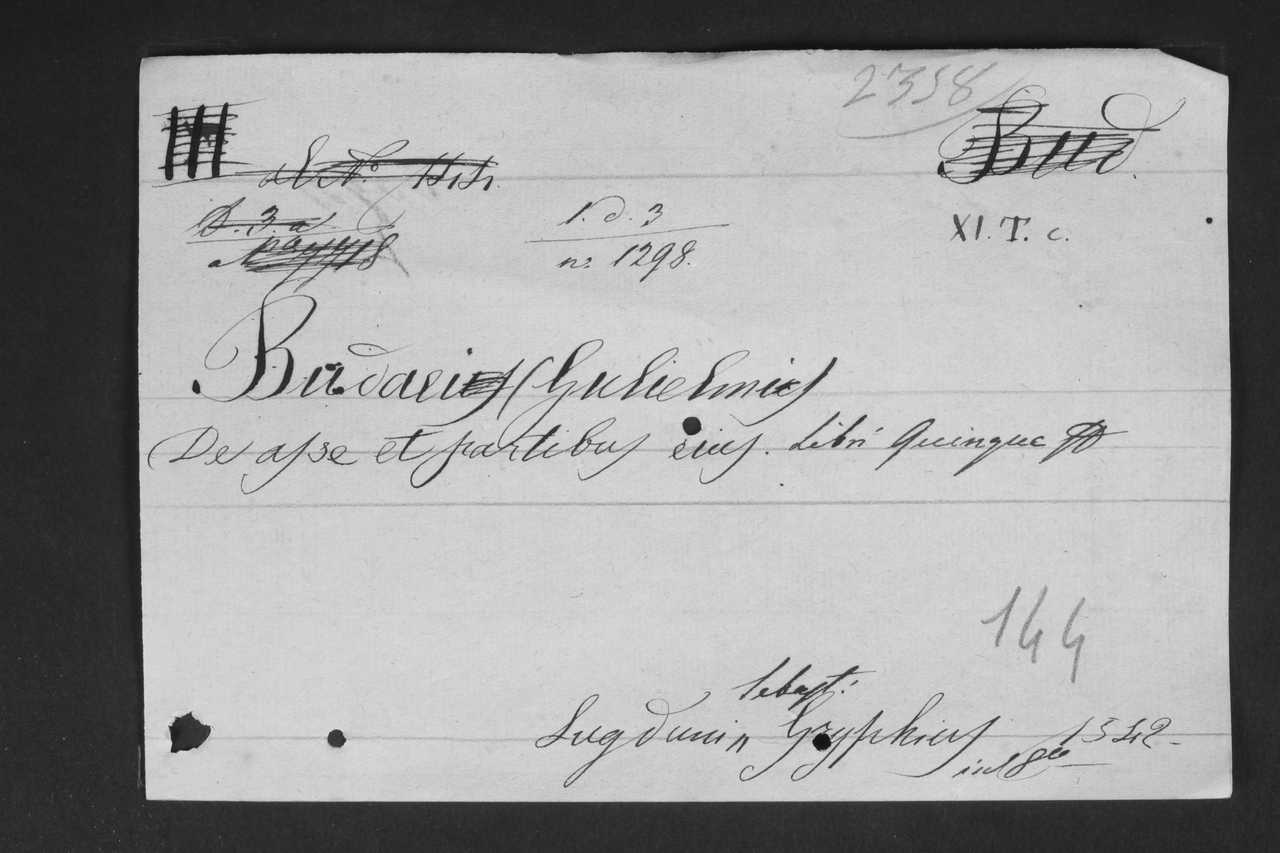 2358
Bud.
N.° 1414.
D. 3. a
1. d. 3
XI. T. c.
n.° 1298.
Budaeus (Gulielmus)
De asse et partibus eius. Libri Quinque
144
Sebast:
Lugduni, Gryphius 1542
in 8.°